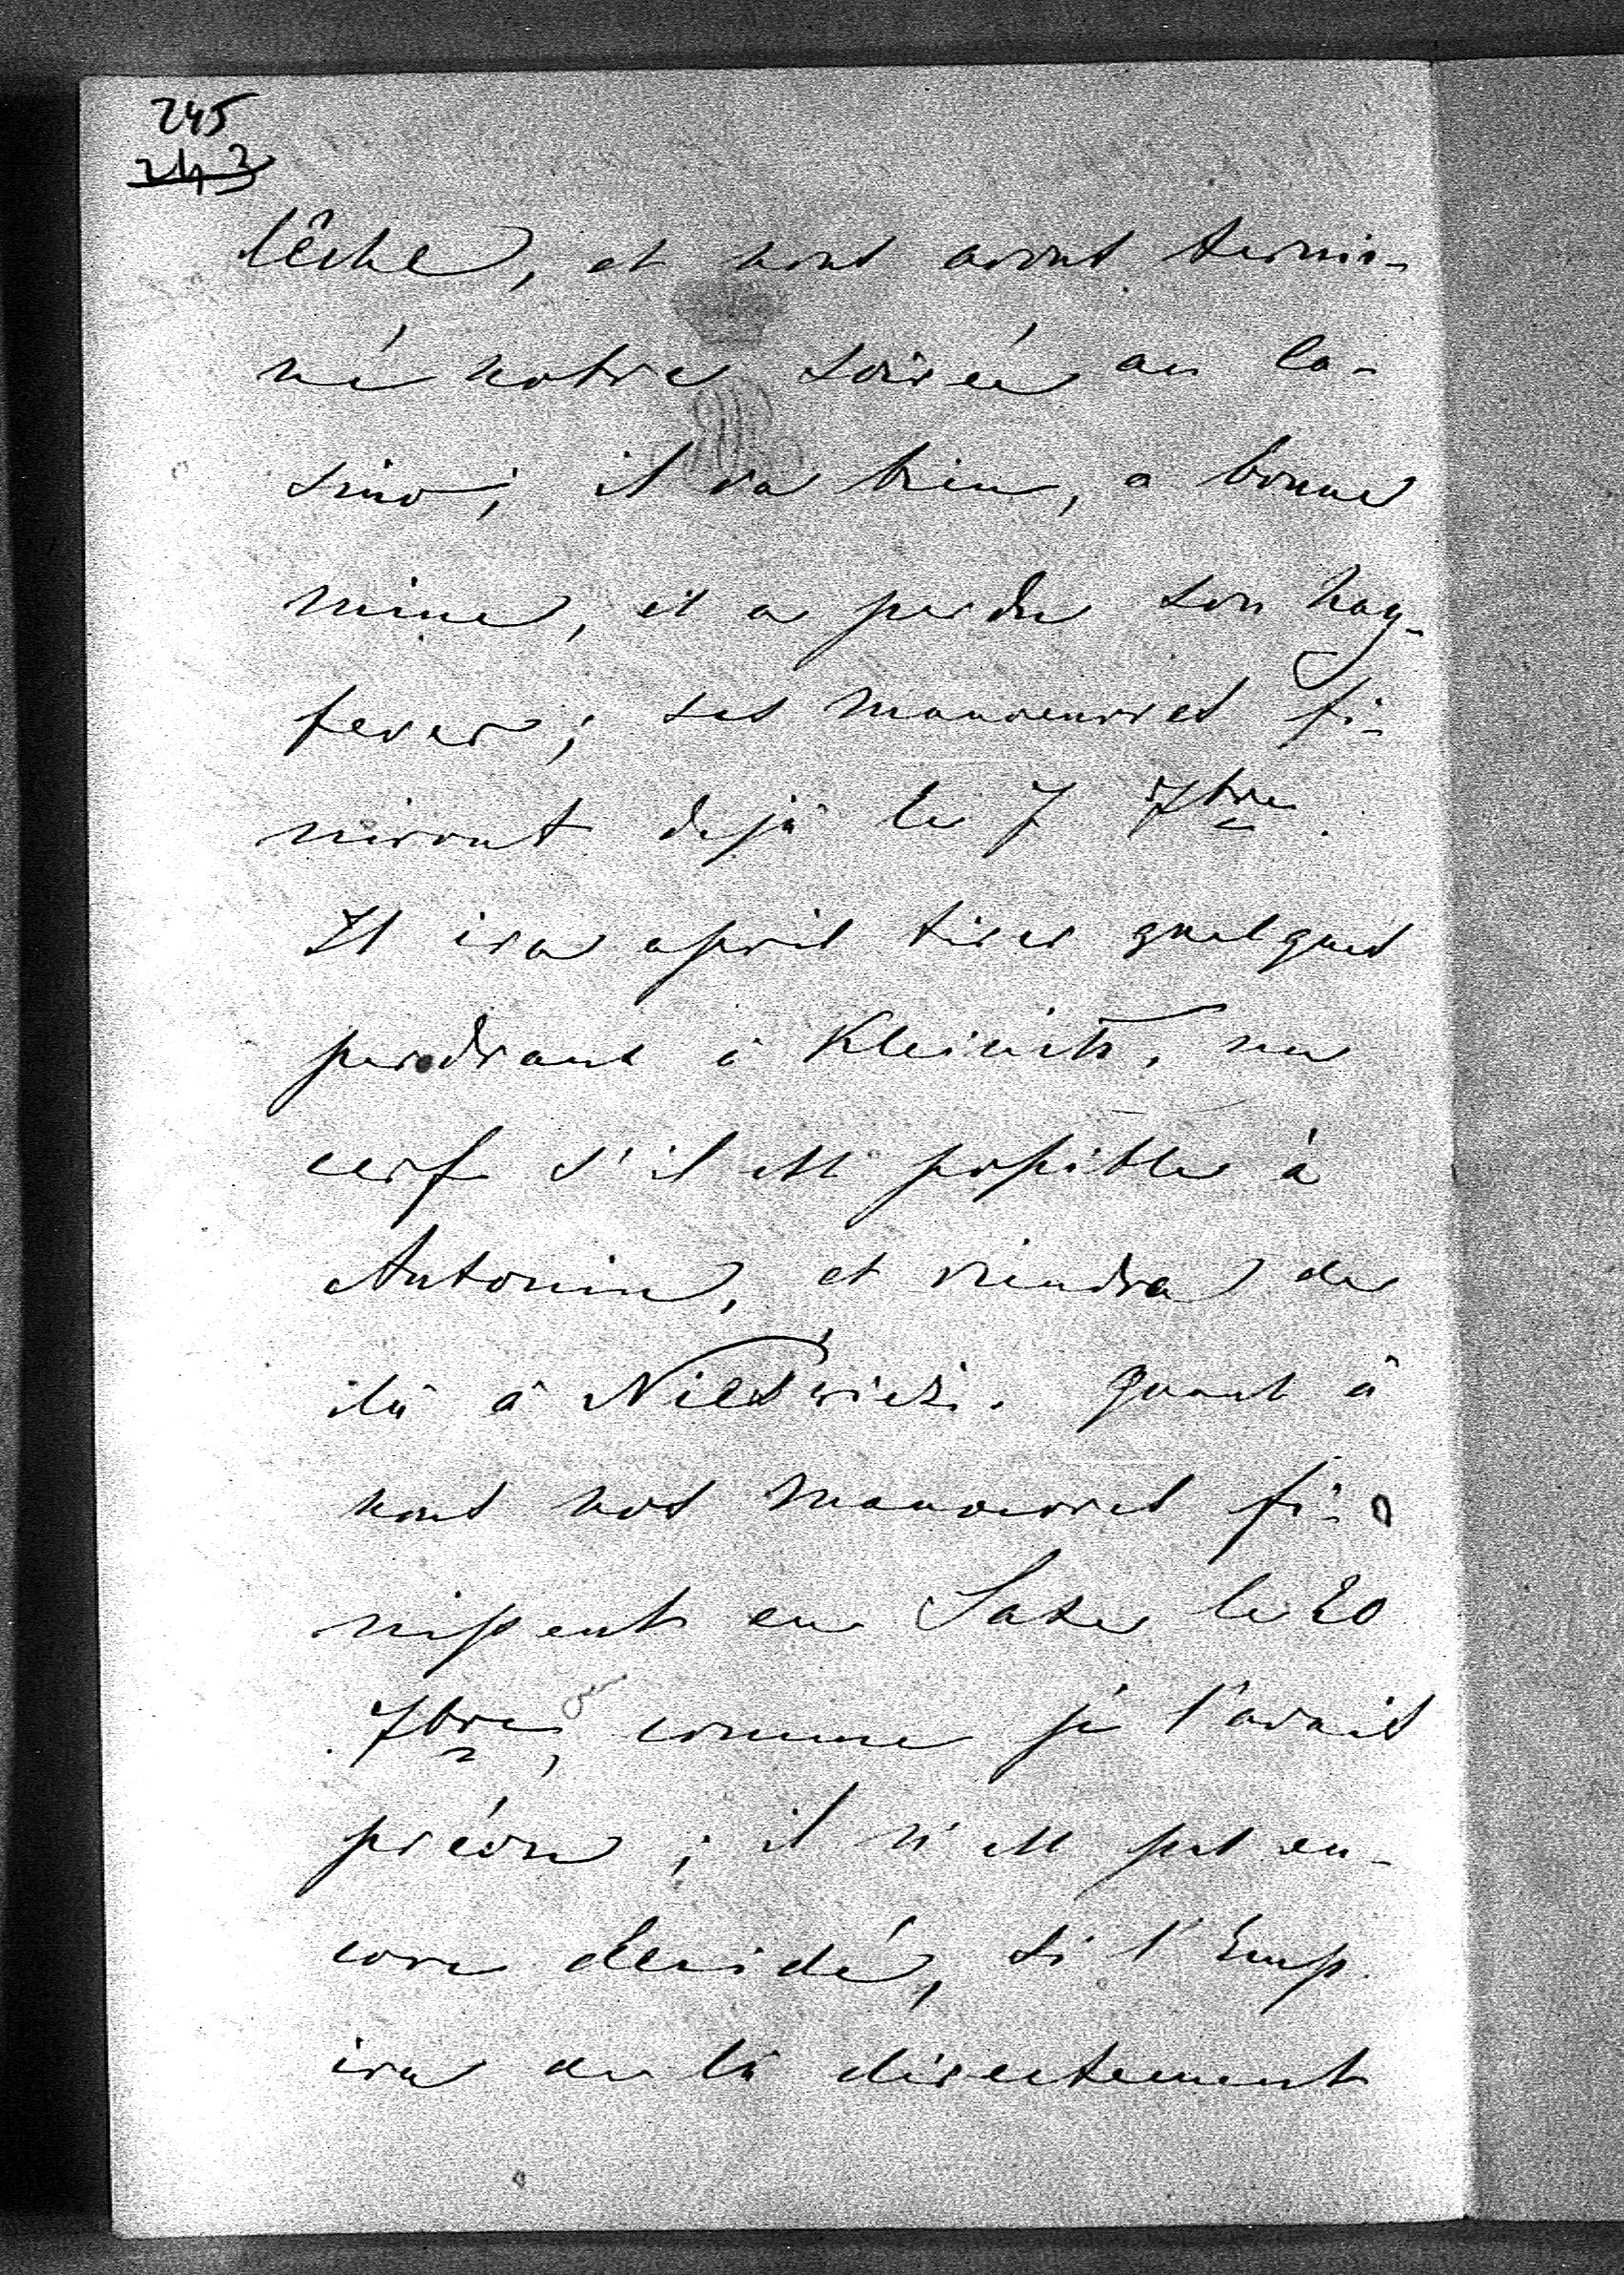 245
243
lêche, et nous avons termi-
né notre soirée au Ca-
sino; il va bien, a bonne
mine, et a perdu son hay-
fever; ses manoeuvres fi-
niront dejà le 7 7bre.
Il ira après tirer quelques
perdraux à Kleinitz, un
cerf s'il est possible à
Antonin, et viendra de
là à Nieświeź. Quant à
nous nos manoeuvres fi-
nissent en Saxe le 20
7bre, comme je l'avais
prévu; il n'est pas en-
core decidé, si l'Emp.
ira de là directement